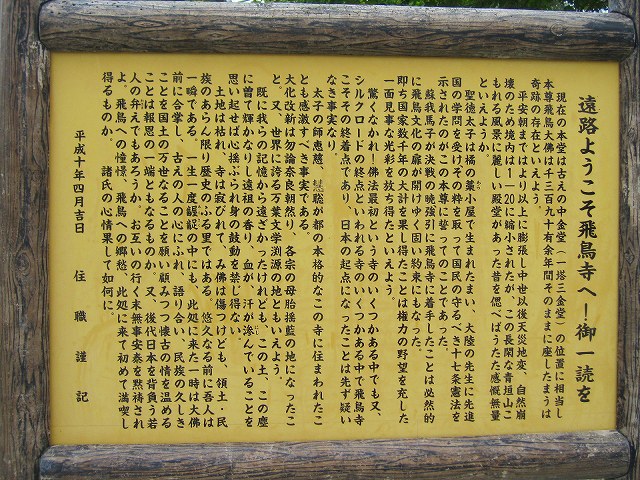 遠路ようこそ飛鳥寺へ!御一読を
現在の本堂は古えの中金堂(一塔三金堂)の位置に相当し
本尊飛鳥大佛は千三百九十有余年間そのままに座したまうは
奇跡の存在といえよう。
平安朝まではより以上に膨張し中世以後天災地変、自然崩
壊のため境内は1―20に縮小されたが、この長閑な青垣山こ
もれる風景に麗しい殿堂があった昔を偲べばうたた感慨無量
といえようか。
聖徳太子は橘の藁小屋で生まれたまい、大陸の先生に先進
国の学問を受けその粋を取って国民の守るべき十七条憲法を
示されたのがこの本尊に誓ってのことであった。
蘇我馬子が決戦の暁強引に飛鳥寺に着手したことは必然的
に飛鳥文化の扉が開けゆく固い約束にもなった。
即ち国家数千年の大計を果し得たことは権力の野望を充した
一面見事な光彩を放ち得たといえよう
驚くなかれ!佛法最初というもののいくつかある中でも又、
シルクロードの終点といわれる寺のいくつかある中で飛鳥寺
こそその終着点であり、日本の起点になったことは先ず疑い
なき事実なり。
太子の師恵慈、慧聡が都の本格的なこの寺に住まわれたこ
とも感激すべき事実である。
大化改新は勿論奈良朝然り、各宗の母胎揺藍の地になったこ
と。又、世界に誇る万葉文学渕源の地ともいえよう
既に我らの記憶から遠ざかったけれども、この土、この塵
に曽て輝かなりし遠祖の香り、血が、汗が滲んでいることを
思い起せば心揺ぶられ身の鼓動を禁じ得ない。
土地は枯れ、寺は寂びれて、み佛は傷つけども、領土・民
族のあらん限り歴史のふる里ではある。悠久なる前に吾人は
一瞬である。一生一度齷齪の中にも、此処に来た一時は大佛
前に合掌し、古えの人の心にふれ、語り合い、民族の久しき
ことを国土の万世なることを願い顧みつつ懐古の情を温める
ことは報恩の一端ともなるものか。又、後代日本を背負う若
人の弁えでもあろうか。お互いの行く末無事安泰を黙祷され
よ。飛鳥への憧憬、飛鳥への郷愁、此処に来て初めて満喫し
得るものか。 諸氏の心情果して如何に。
平成十年四月吉日 住職謹記